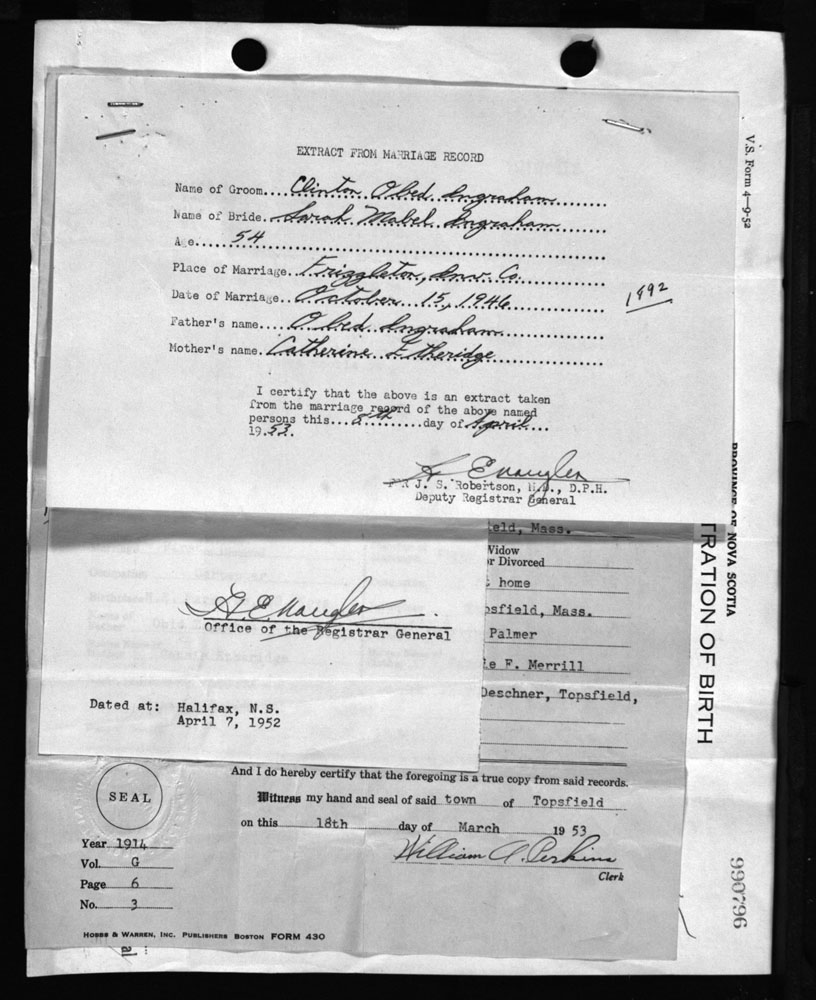 EXTRACT FROM MARRIAGE RECORD
Name of Groom.... Clinton Obed Ingraham
Name of Bride. Sarah Mabel Ingraham
Age..... 54
Place of Marriage.. Friggleton, Inv. Co.
Date of Marriage.. October 15, 1946
1892
Father's name.... Obed Ingraham
Mother's name. Catherine Etheridge
I certify that the above is an extract taken
from the marriage record of the above named
persons this... 8th ........day of April...
19.53.
J. S. Robertson, M.D., D.P.H.
Deputy Registrar General
eld, Mass.
Widow
or Divorced
home
psfield, Mass.
Palmer
e F. Merrill
Deschner, Topsfield,
Office of the Registrar General
Dated at: Halifax, N.S.
April 7, 1952
And I do hereby certify that the foregoing is a true copy from said records.
Witness my hand and seal of said town of Topsfield
on this 18th day of March 19 53
William A. Perkins
Clerk
SEAL
Year 1914
Vol. G
Page 6
No. 3
HOBBS & WARREN, INC. PUBLISHERS BOSTON FORM 430
al
V.S. Form 4—9-52
PROVINCE OF NOVA SCOTIA
TRATION OF BIRTH
990796